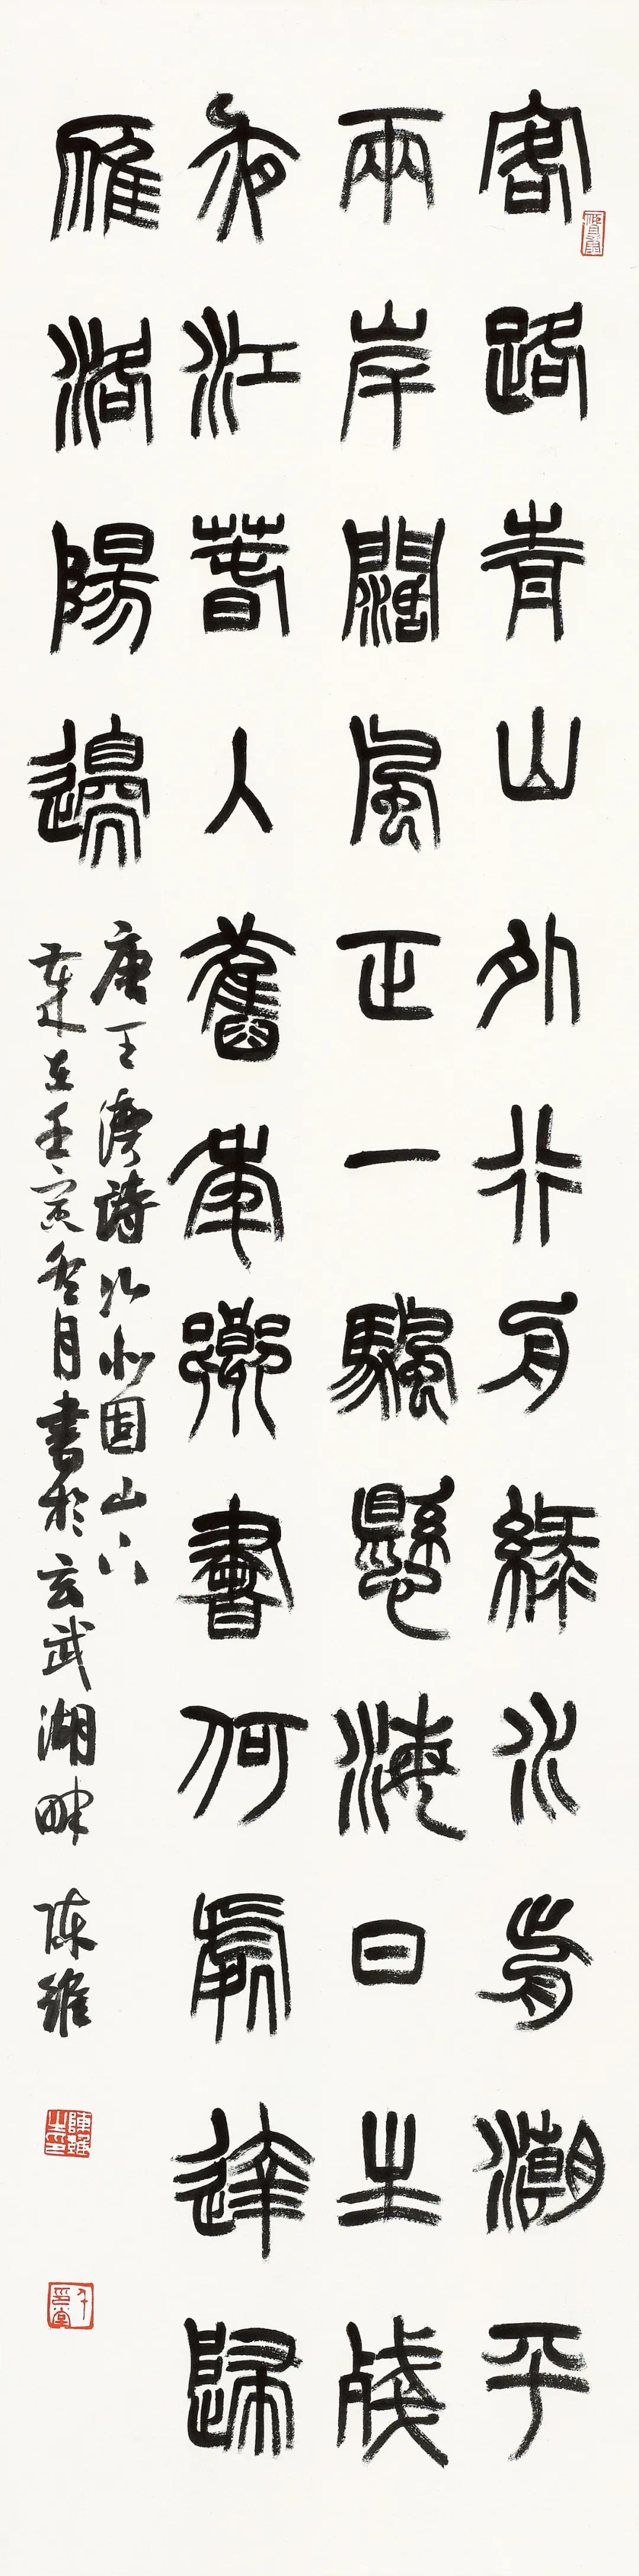 客路青山外行舟綠水前潮平
兩岸闊風正一颿懸海日生殘
夜江春入舊年鄉書何處達歸
雁洛陽邊
唐王灣詩次北固山下
歲在壬寅冬月書於玄武湖畔 陈